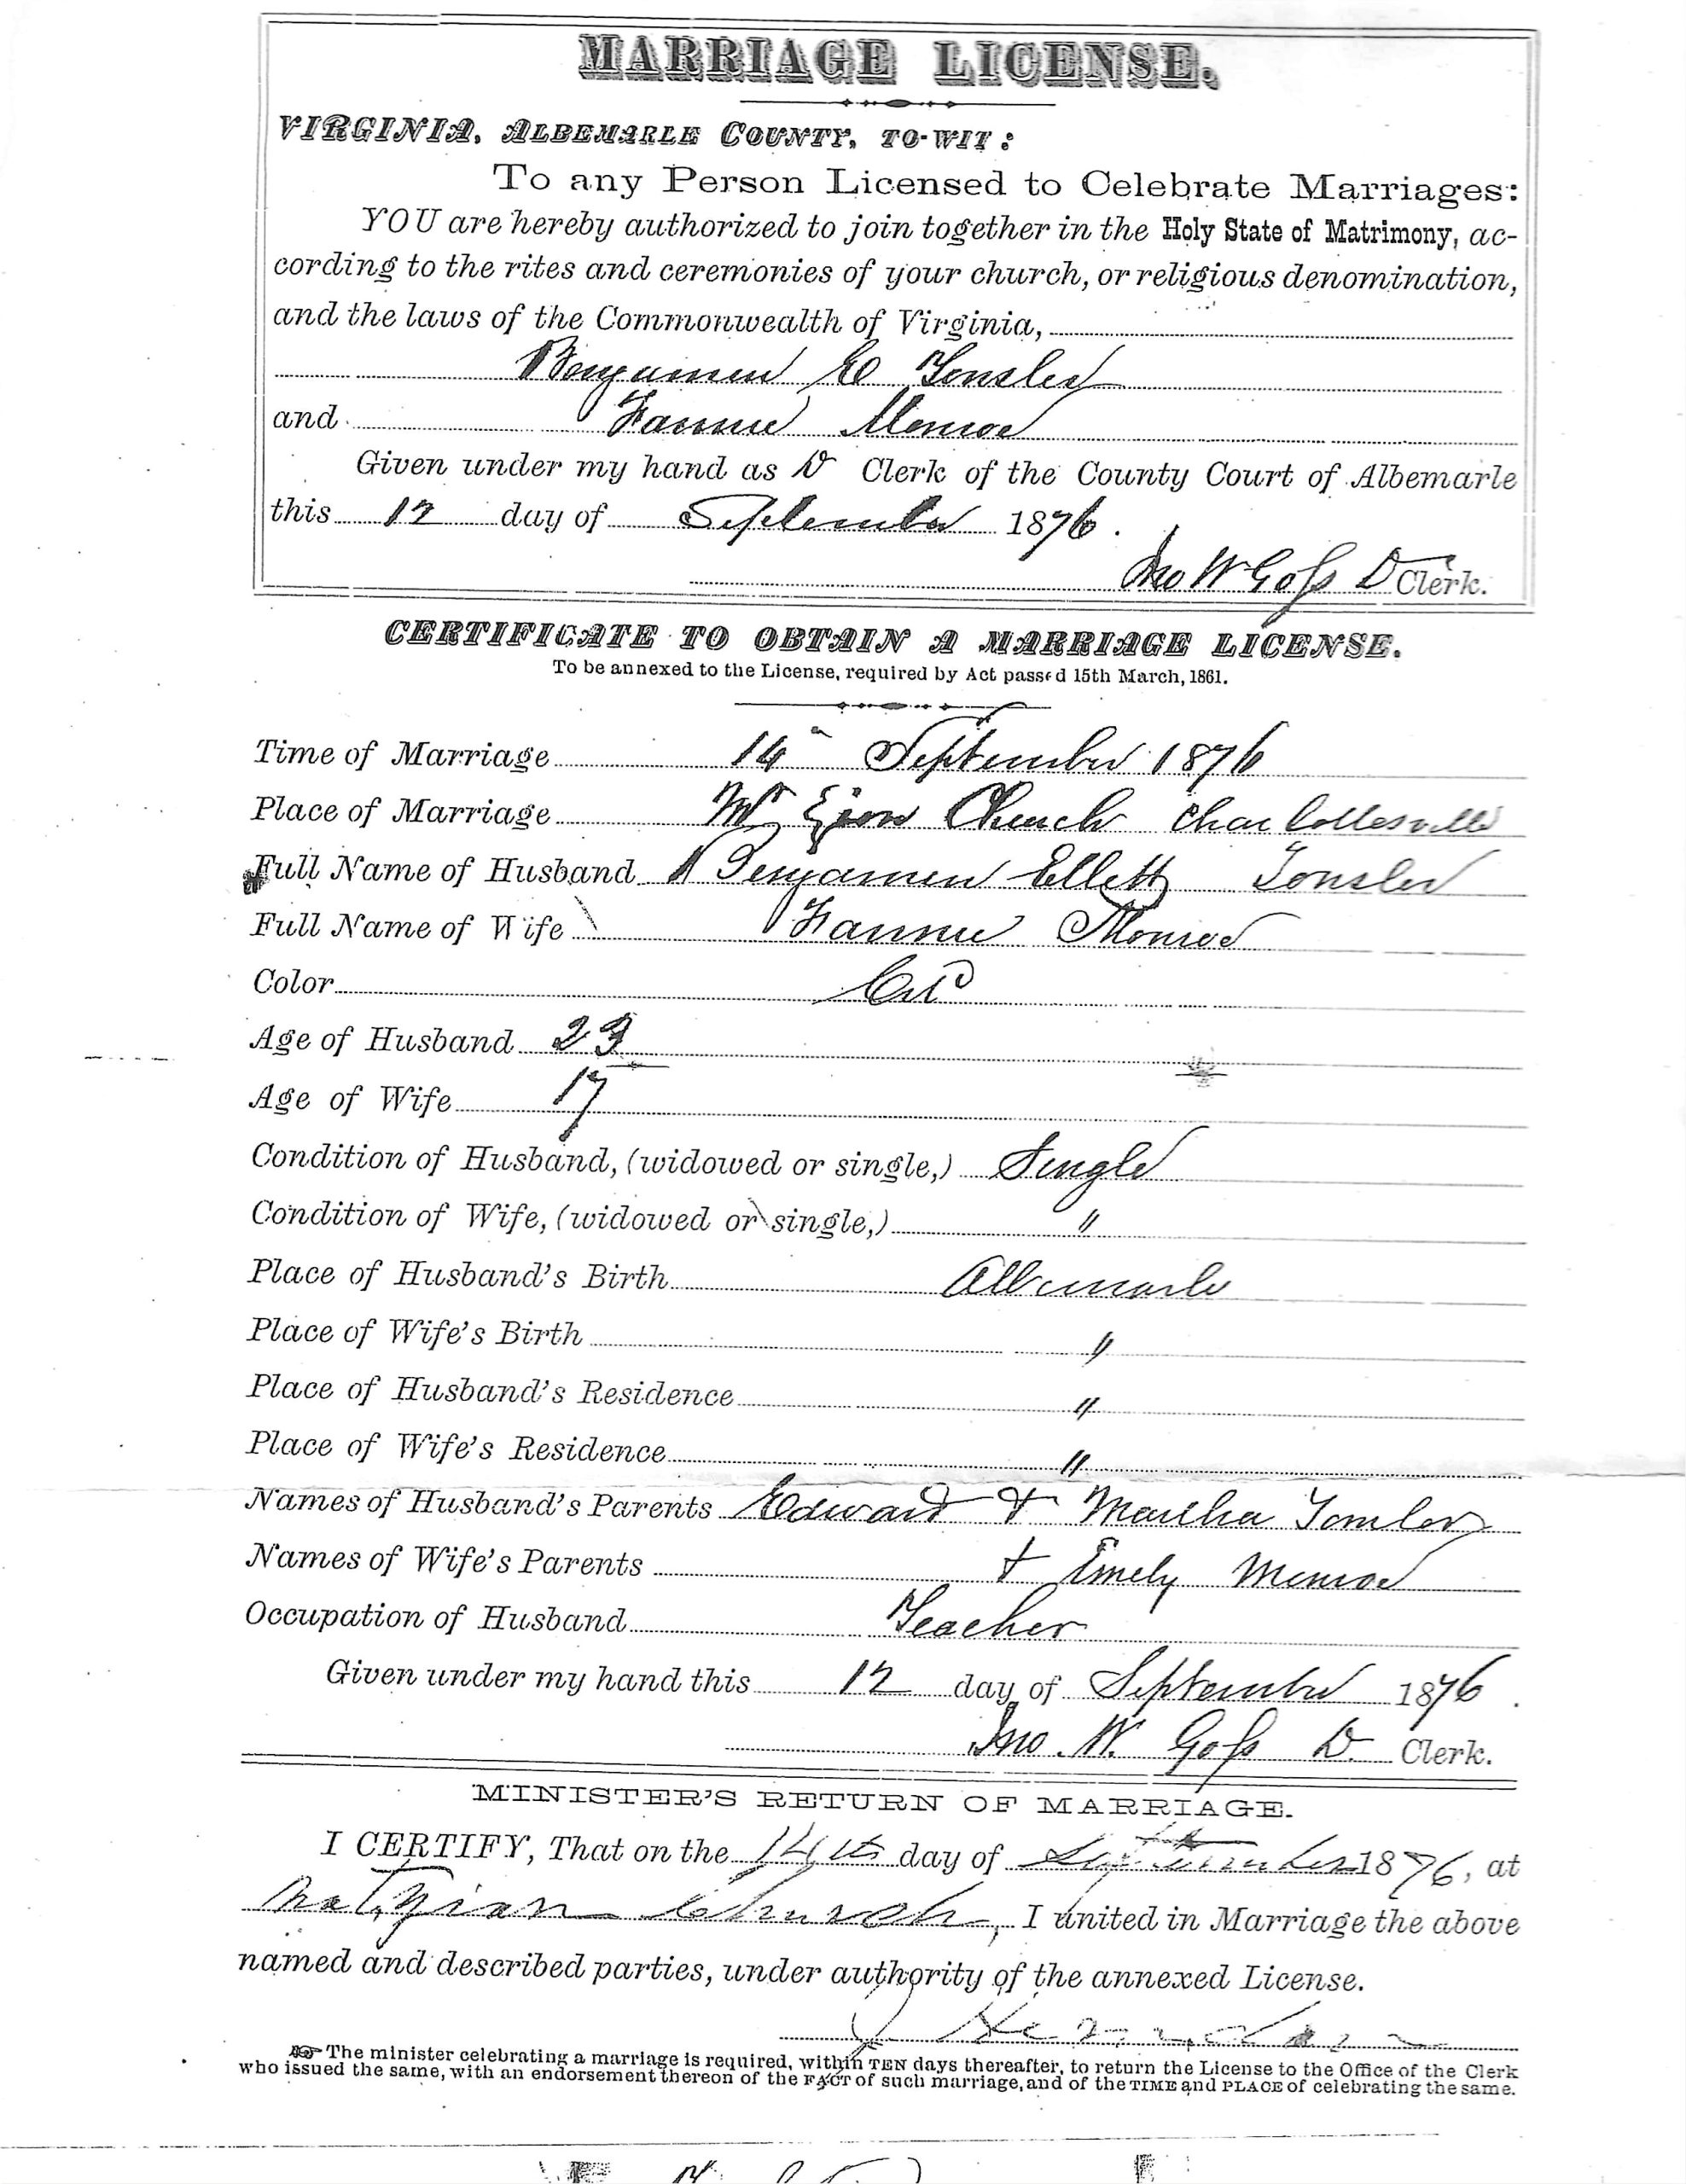 MARRIAGE LICENSE.
VIRGINIA, ALBEMARLE COUNTY, TO-WIT:
To any Person Licensed to Celebrate Marriages:
YOU are hereby authorized to join together in the Holy State of Matrimony, ac-
cording to the rites and ceremonies of your church, or religious denomination,
and the laws of the Commonwealth of Virginia,
Benjamin E Tonsler
and Fannie Monroe
Given under my hand as D Clerk of the County Court of Albemarle
this 12 day of September 1876.
Jno W Goss D Clerk.
CERTIFICATE TO OBTAIN A MARRIAGE LICENSE.
To be annexed to the License, required by Act passed 15th March, 1861.
Time of Marriage 14 September 1876
Place of Marriage Mt Zion Church Charlottesville
Full Name of Husband Benjamin Ellett Tonsler
Full Name of Wife Fannie Monroe
Color Cold
Age of Husband 23
Age of Wife 17
Condition of Husband, (widowed or single,) Single
Condition of Wife, (widowed or single,) "
Place of Husband's Birth Albemarle
Place of Wife's Birth "
Place of Husband's Residence "
Place of Wife's Residence "
Names of Husband's Parents Edward & Martha Tonsler
Names of Wife's Parents & Emely Monroe
Occupation of Husband Teacher
Given under my hand this 12 day of September 1876.
Jno. W. Goss D. Clerk.
MINISTER'S RETURN OF MARRIAGE.
I CERTIFY, That on the 14th day of September 1876, at
Mt. Zion Church, I united in Marriage the above
named and described parties, under authority of the annexed License.
J
The minister celebrating a marriage is required, within TEN days thereafter, to return the License to the Office of the Clerk
who issued the same, with an endorsement thereon of the FACT of such marriage, and of the TIME and PLACE of celebrating the same.